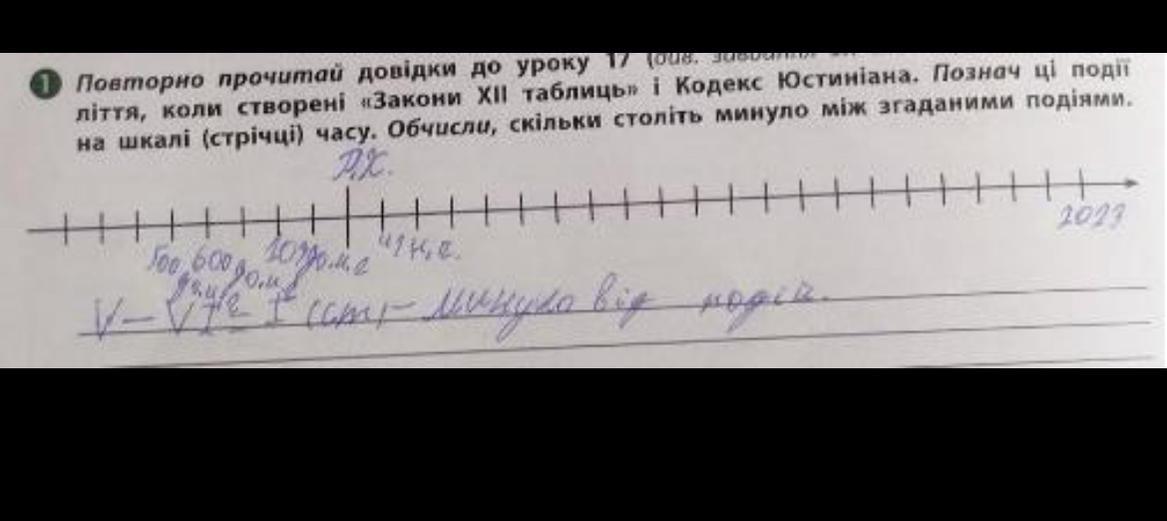 1 Повторно прочитай довідки до уроку 17
ліття, коли створені «Закони XII таблиць» і Кодекс Юстиніана. Познач ці події
на шкалі (стрічці) часу. Обчисли, скільки століть минуло між згаданими подіями.
Р.Х.
2023
500 600
V – VI = I (ст) – минуло від подій.